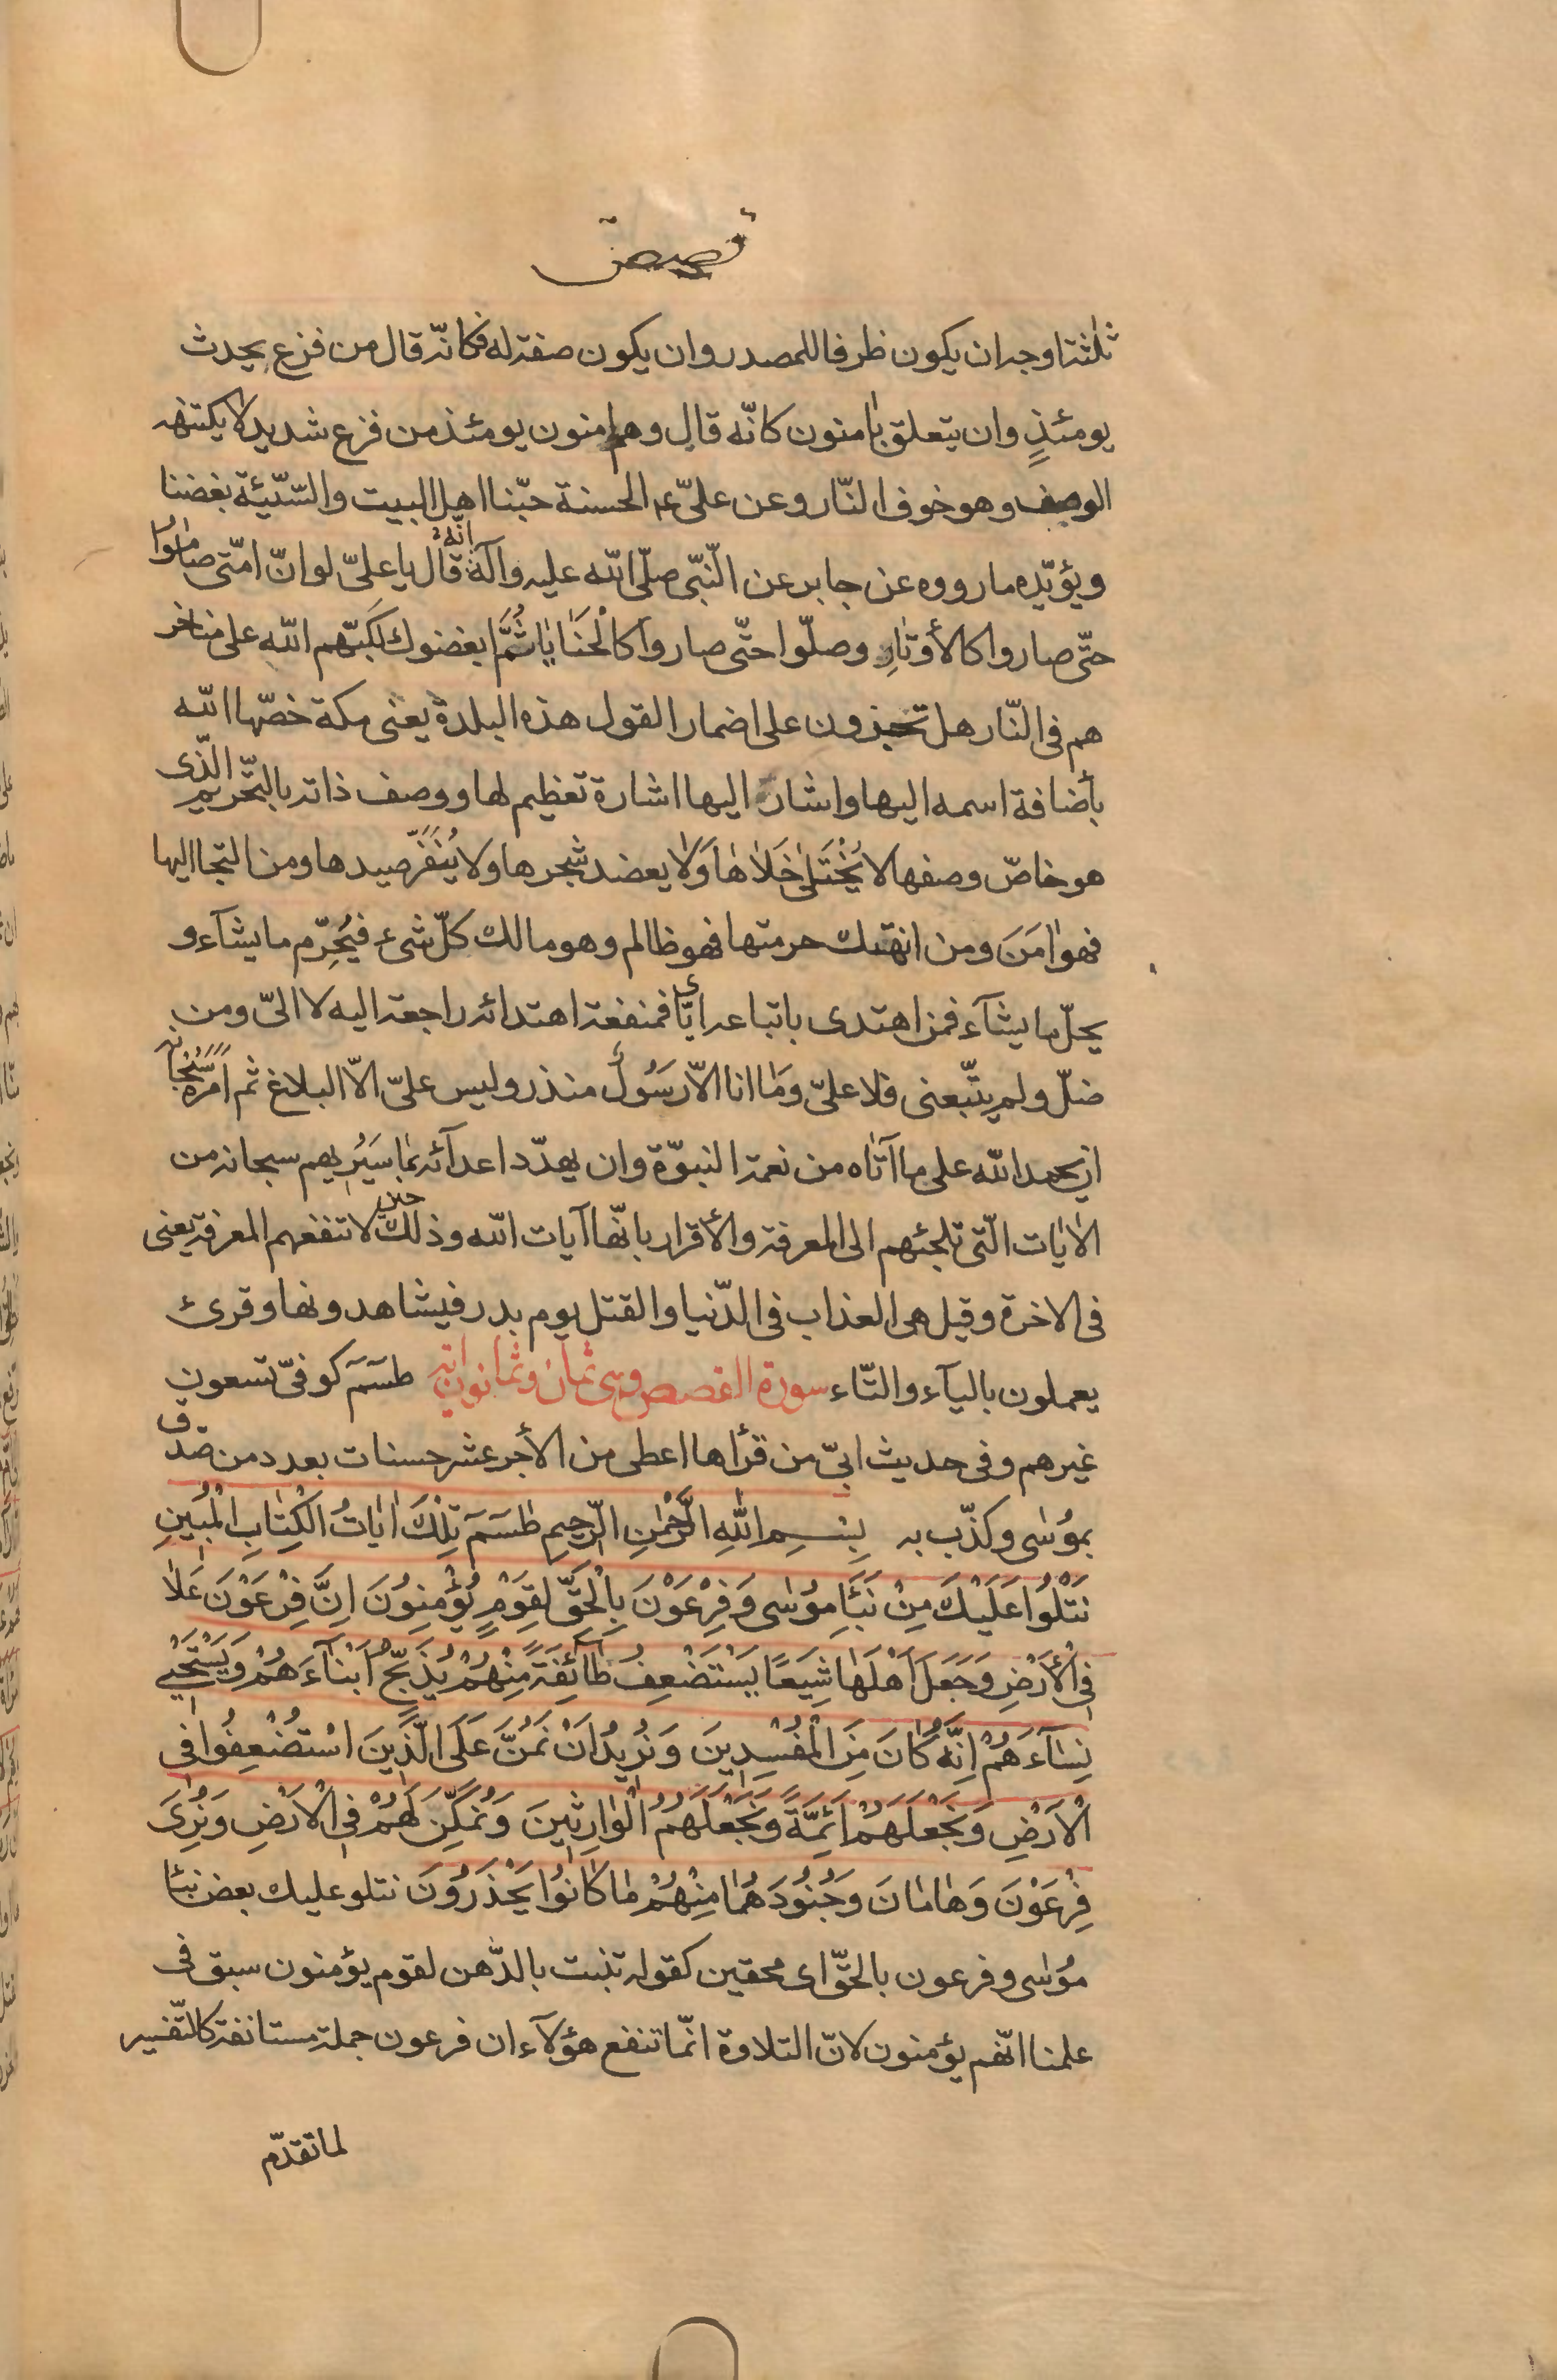 قصص
ثلثة اوجه ان يكون ظرفا للمصدر وان يكون صفة له فكانّه قال من فزع يحدث
يومئذٍ وان يتعلق بٰامنون كانّه قال وهم امنون يومئذ من فزع شديد لا يكتنهه
الوصف وهو خوف النّار وعن علیّ ع الحسنة حبّنا اهل البيت والسّيّئة بغضنا
ويؤيّده ما رووه عن جابر عن النّبیّ صلّی الله عليه وآله انّه قال يا علیّ لو انّ امّتی صاموا
حتّی صاروا كالأوتٰارِ وصلّوا حتّی صاروا كالْحَنٰايٰا ثُمَّ ابغضوك لكبّهم الله علی مناخر
هم فی النّار هل تجزون علی اضمار القول هذه البلدة يعنی مكة خصّها الله
بأضافة اسمه اليها واشار اليها اشارة تعظيم لها ووصف ذاته بالتّحريم الّذی
هو خاصّ وصفها لا يُخْتَلیٰ خَلاٰهٰا وَلاٰ يعضد شجرها ولا يُنَفَّر صيدها ومن التجا اليها
فهو اٰمَنَ ومن انهتك حرمتها فهو ظالم وهو مالك كلّ شیء فيُحرِّم ما يشآء و
يحلّ ما يشآء فمن اهتدی باتباعه ايّای فمنفعة اهتدائه راجعة اليه لا الیّ ومن
ضلّ ولم يتّبعنی فلا علیّ وَمٰا انا الاّ رَسُولٌ منذر وليس علیّ الاّ البلاغ ثم امره سُبْحٰانه
ان يحمد الله علی ما آتٰاه من نعمة النبوّة وان يهدّد اعدآئه بمٰا سَيُريهم سبحانه من
الاٰيٰات الّتی تلجئهم الی المعرفة والأقرار بانّها آيات الله وذلك حين لا تنفعهم المعرفة يعنی
فی الاخرة وقيل هی العذاب فی الدّنيا والقتل يوم بدر فيشاهدونها وقرئ
يعملون باليآء والتّاء سورة القصص وهی ثمان وثمانون اية طسَمَ كوفیّ تسعون
غيرهم وفی حديث ابیّ من قرأها اعطی من الأجر عشر حسنات بعدد من صدّق
بمُوسٰی وكذّب به بِسْمِ اللهِ الرَّحْمٰنِ الرَّحيمِ طٰسَمَ تِلْكَ اٰيٰاتُ الْكِتٰابِ الْمُبٖينِ
نَتْلُوا عَلَيْكَ مِنْ نَبَأِ مُوسٰی وَفِرْعَوْنَ بِالْحَقِّ لِقَوْمٍ يُؤْمِنُونَ اِنَّ فِرْعَوْنَ عَلاٰ
فِی الْأَرْضِ وَجَعَلَ اَهْلَهٰا شِيَعًا يَسْتَضْعِفُ طٰآئِفَةً مِنْهُمْ يُذَبِّحُ اَبْنٰآءَهُمْ وَيَسْتَحْیٖ
نِسٰآءَهُمْ اِنَّهُ كٰانَ مِنَ الْمُفْسِدٖينَ وَنُرٖيدُ اَنْ نَمُنَّ عَلَی الَّذٖينَ اسْتُضْعِفُوا فِی
الْاَرْضِ وَنَجْعَلَهُمْ اَئِمَّةً وَنَجْعَلَهُمُ الْوٰارِثٖينَ وَنُمَكِّنَ لَهُمْ فِی الْاَرْضِ وَنُرِیَ
فِرْعَوْنَ وَهٰامٰانَ وَجُنُودَهُمٰا مِنْهُمْ مٰا كٰانُوا يَحْذَرُونَ نتلو عليك بعض نبأ
مُوسٰی وفرعون بالحقّ ای محقين كقوله تنبت بالدّهن لقوم يؤمنون سبق فی
علمنا انّهم يؤمنون لانّ التلاوة انّما تنفع هؤلآء ان فرعون جملة مستانفة كالتّفسير
لما تقدّم